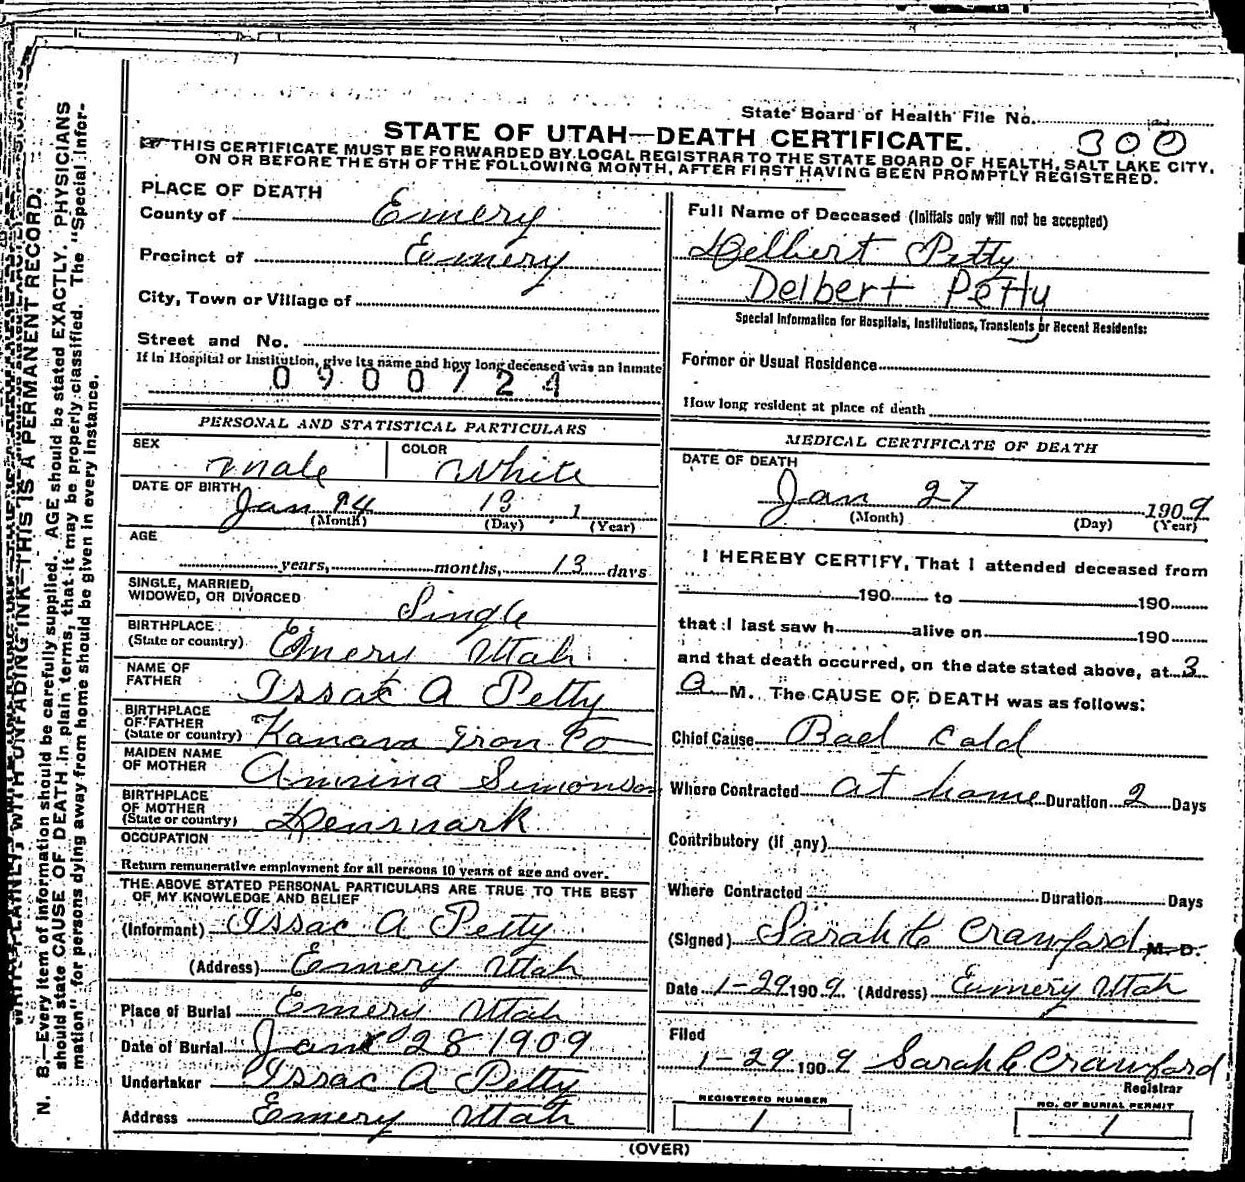 State Board of Health File No.
300
STATE OF UTAH—DEATH CERTIFICATE.
THIS CERTIFICATE MUST BE FORWARDED BY LOCAL REGISTRAR TO THE STATE BOARD OF HEALTH, SALT LAKE CITY,
ON OR BEFORE THE 5TH OF THE FOLLOWING MONTH, AFTER FIRST HAVING BEEN PROMPTLY REGISTERED.
PLACE OF DEATH
County of Emery
Precinct of Emery
City, Town or Village of
Street and No.
If in Hospital or Institution, give its name and how long deceased was an inmate
0900724
PERSONAL AND STATISTICAL PARTICULARS
SEX Male COLOR White
DATE OF BIRTH Jan 14 13 1
(Month) (Day) (Year)
AGE
years, months, 13 days
SINGLE, MARRIED,
WIDOWED, OR DIVORCED Single
BIRTHPLACE
(State or country) Emery Utah
NAME OF
FATHER Issac A Petty
BIRTHPLACE
OF FATHER
(State or country) Kanara Iron Co
MAIDEN NAME
OF MOTHER Annina Simonson
BIRTHPLACE
OF MOTHER
(State or country) Denmark
OCCUPATION
Return remunerative employment for all persons 10 years of age and over.
THE ABOVE STATED PERSONAL PARTICULARS ARE TRUE TO THE BEST
OF MY KNOWLEDGE AND BELIEF
(Informant) Issac A Petty
(Address) Emery Utah
Place of Burial Emery Utah
Date of Burial Jan 28 1909
Undertaker Issac A Petty
Address Emery Utah
Full Name of Deceased (Initials only will not be accepted)
Delbert Petty
Delbert Petty
Special Information for Hospitals, Institutions, Transients or Recent Residents:
Former or Usual Residence
How long resident at place of death
MEDICAL CERTIFICATE OF DEATH
DATE OF DEATH
Jan 27 1909
(Month) (Day) (Year)
I HEREBY CERTIFY, That I attended deceased from
190 to 190
that I last saw h alive on 190
and that death occurred, on the date stated above, at 3
a M. The CAUSE OF DEATH was as follows:
Chief Cause Bad Cold
Where Contracted at home Duration 2 Days
Contributory (if any)
Where Contracted Duration Days
(Signed) Sarah C Crawford M. D.
Date 1-29 1909 (Address) Emery Utah
Filed
1-29 1909 Sarah C. Crawford
Registrar
REGISTERED NUMBER
1
NO. OF BURIAL PERMIT
1
(OVER)
WRITE PLAINLY, WITH UNFADING INK—THIS IS A PERMANENT RECORD.
N. B.—Every item of information should be carefully supplied. AGE should be stated EXACTLY. PHYSICIANS
should state CAUSE OF DEATH in plain terms, that it may be properly classified. The "Special Infor-
mation" for persons dying away from home should be given in every instance.